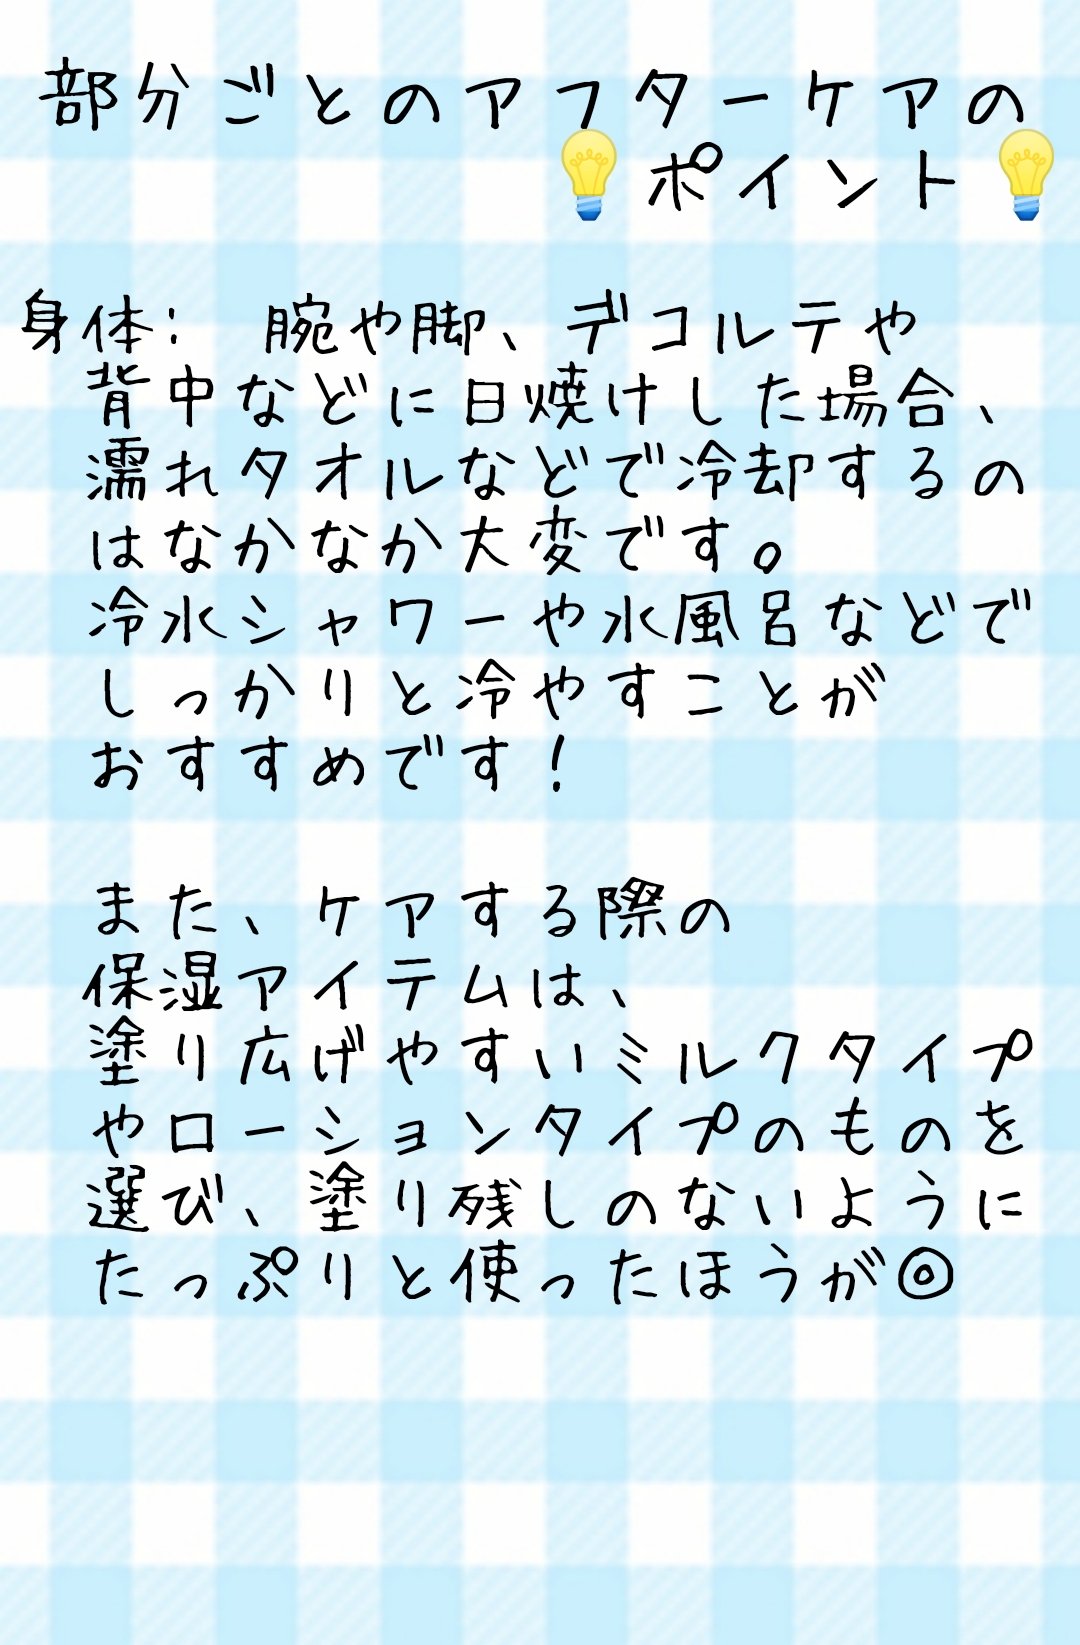 部分ごとのアフターケアの
💡ポイント💡
身体: 腕や脚、デコルテや
背中などに日焼けした場合、
濡れタオルなどで冷却するの
はなかなか大変です。
冷水シャワーや水風呂などで
しっかりと冷やすことが
おすすめです!
また、ケアする際の
保湿アイテムは、
塗り広げやすいミルクタイプ
やローションタイプのものを
選び、塗り残しのないように
たっぷりと使ったほうが◎